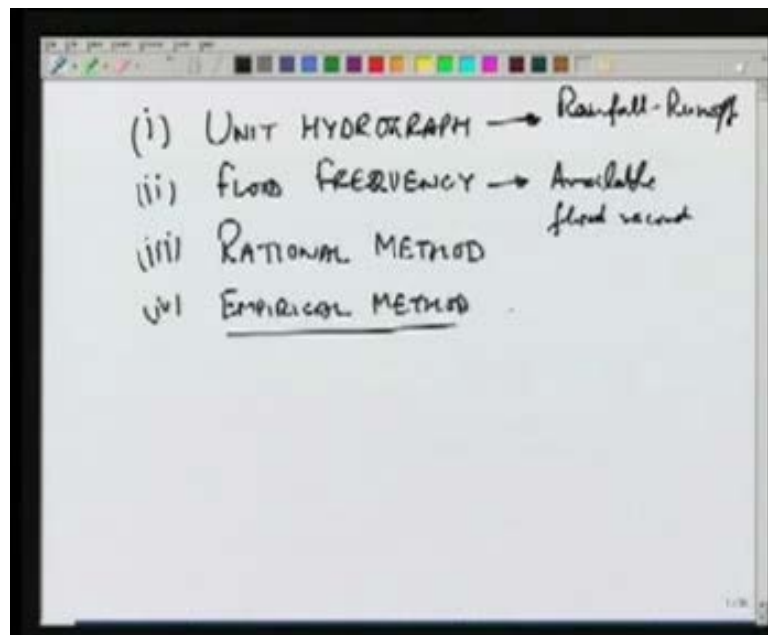 (i) UNIT HYDROGRAPH → Rainfall-Runoff
(ii) FLOOD FREQUENCY → Available
flood record
(iii) RATIONAL METHOD
(iv) EMPIRICAL METHOD